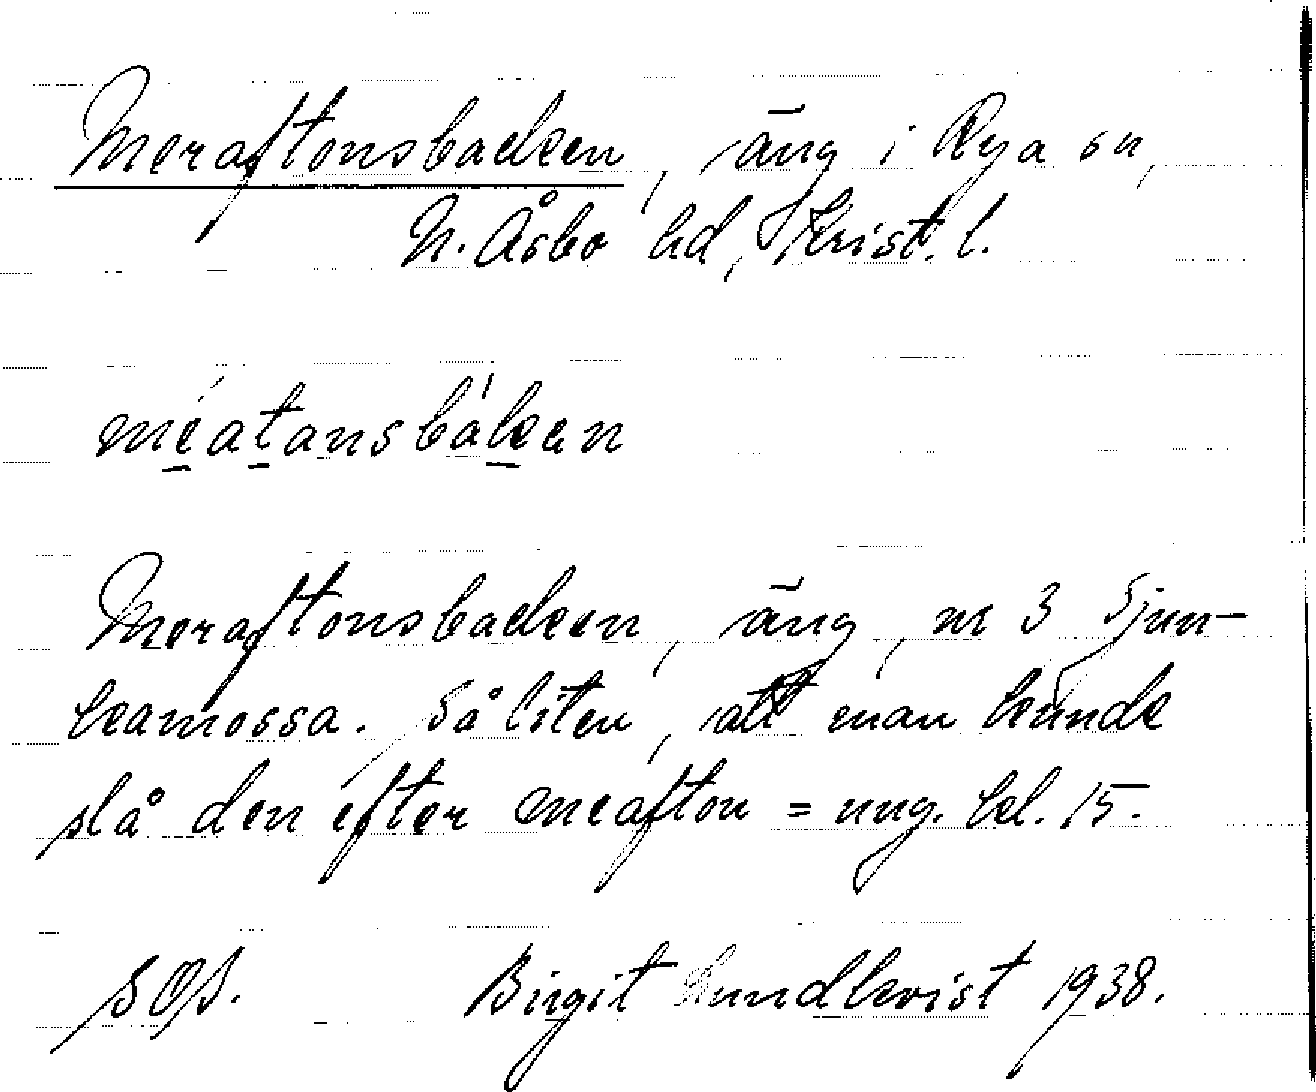 Meraftonsbacken, äng i Rya sn,
N. Åsbo hd, Krist. l.
meatansbaken
Meraftonsbacken, äng, nr 3 Sjun-
kamossa. Så liten, att man kunde
slå den efter meafton = ung. kl. 15.
Birgit Lundkvist 1938.